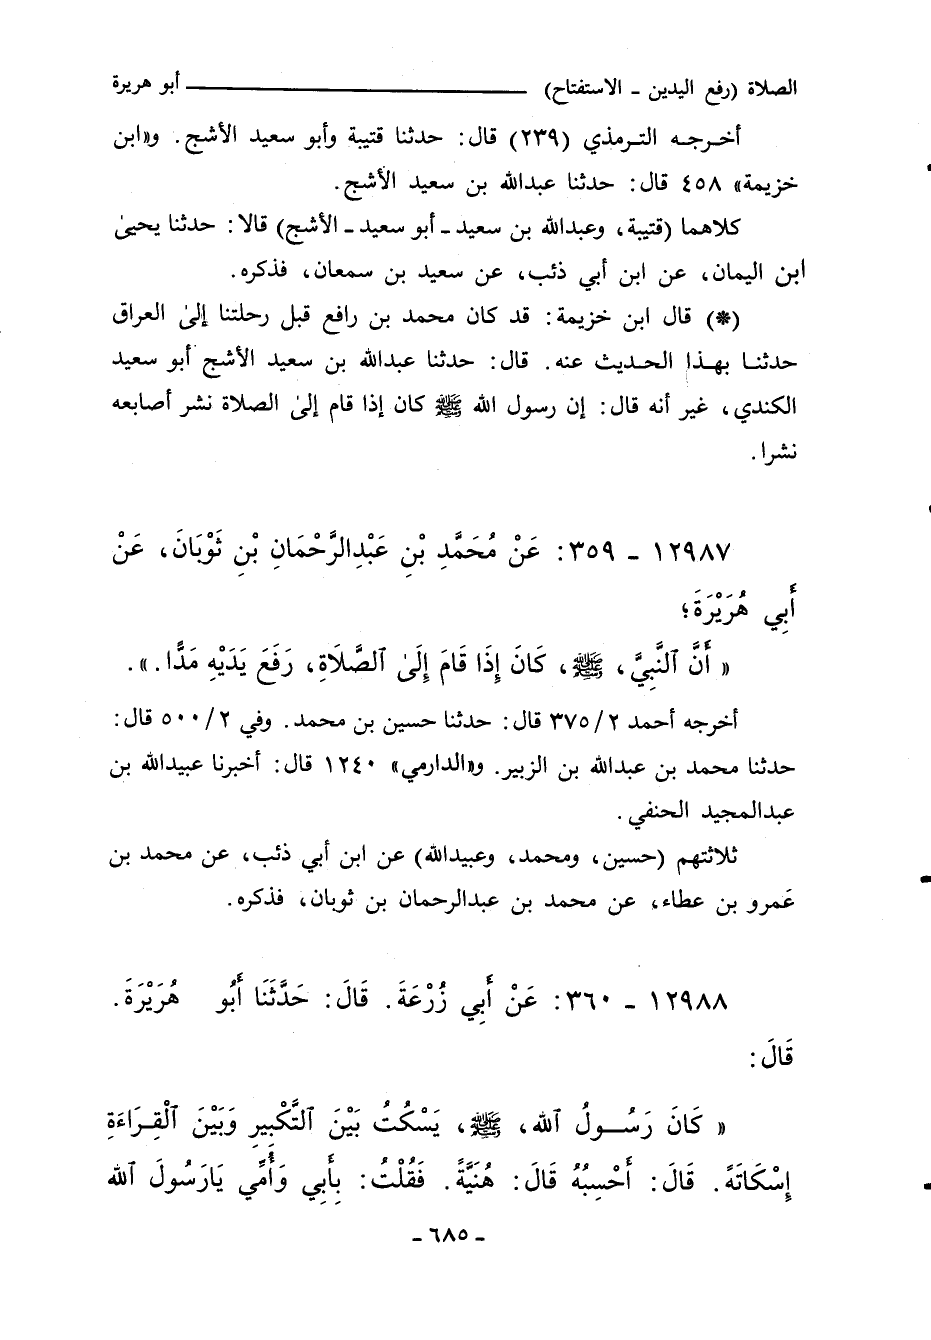 الصلاة (رفع اليدين ـ الاستفتاح) ــــــــــــــــــــ أبو هريرة
أخرجه الترمذي (٢٣٩) قال: حدثنا قتيبة وأبو سعيد الأشج. و«ابن
خزيمة» ٤٥٨ قال: حدثنا عبدالله بن سعيد الأشج.
كلاهما (قتيبة، وعبدالله بن سعيد ـ أبو سعيد ـ الأشج) قالا: حدثنا يحيىٰ
ابن اليمان، عن ابن أبي ذئب، عن سعيد بن سمعان، فذكره.
(*) قال ابن خزيمة: قد كان محمد بن رافع قبل رحلتنا إلىٰ العراق
حدثنا بهذا الحديث عنه. قال: حدثنا عبدالله بن سعيد الأشج أبو سعيد
الكندي، غير أنه قال: إن رسول الله ﷺ كان إذا قام إلىٰ الصلاة نشر أصابعه
نشرا.
١٢٩٨٧ ـ ٣٥٩: عَنْ مُحَمَّدِ بْنِ عَبْدِالرَّحْمَانِ بْنِ ثَوْبَانَ، عَنْ
أَبِي هُرَيْرَةَ؛
« أَنَّ ٱلنَّبِيَّ، ﷺ، كَانَ إِذَا قَامَ إِلَىٰ ٱلصَّلَاةِ، رَفَعَ يَدَيْهِ مَدًّا.».
أخرجه أحمد ٢/٣٧٥ قال: حدثنا حسين بن محمد. وفي ٢/٥٠٠ قال:
حدثنا محمد بن عبدالله بن الزبير. و«الدارمي» ١٢٤٠ قال: أخبرنا عبيدالله بن
عبدالمجيد الحنفي.
ثلاثتهم (حسين، ومحمد، وعبيدالله) عن ابن أبي ذئب، عن محمد بن
عَمرو بن عطاء، عن محمد بن عبدالرحمان بن ثوبان، فذكره.
١٢٩٨٨ ـ ٣٦٠: عَنْ أَبِي زُرْعَةَ. قَالَ: حَدَّثَنَا أَبُو هُرَيْرَةَ.
قَالَ:
« كَانَ رَسُولُ ٱلله، ﷺ، يَسْكُتُ بَيْنَ ٱلتَّكْبِيرِ وَبَيْنَ ٱلْقِرَاءَةِ
إِسْكَاتَةً. قَالَ: أَحْسِبُهُ قَالَ: هُنَيَّةً. فَقُلْتُ: بِأَبِي وَأُمِّي يَارَسُولَ ٱلله
ـ ٦٨٥ ـ